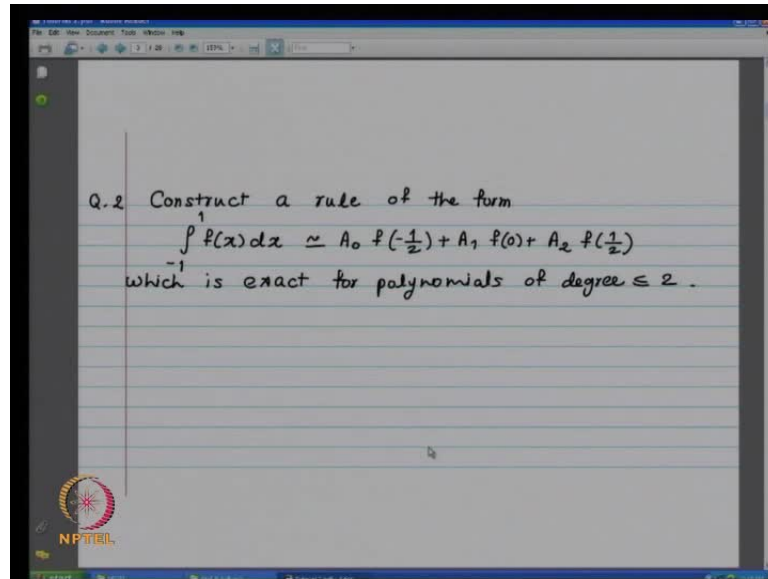 File Edit View Document Tools Window Help
3 / 28
Q.2 Construct a rule of the form
∫₋₁¹ f(x) dx ≃ A₀ f(-1/2) + A₁ f(0) + A₂ f(1/2)
which is exact for polynomials of degree ≤ 2.
NPTEL